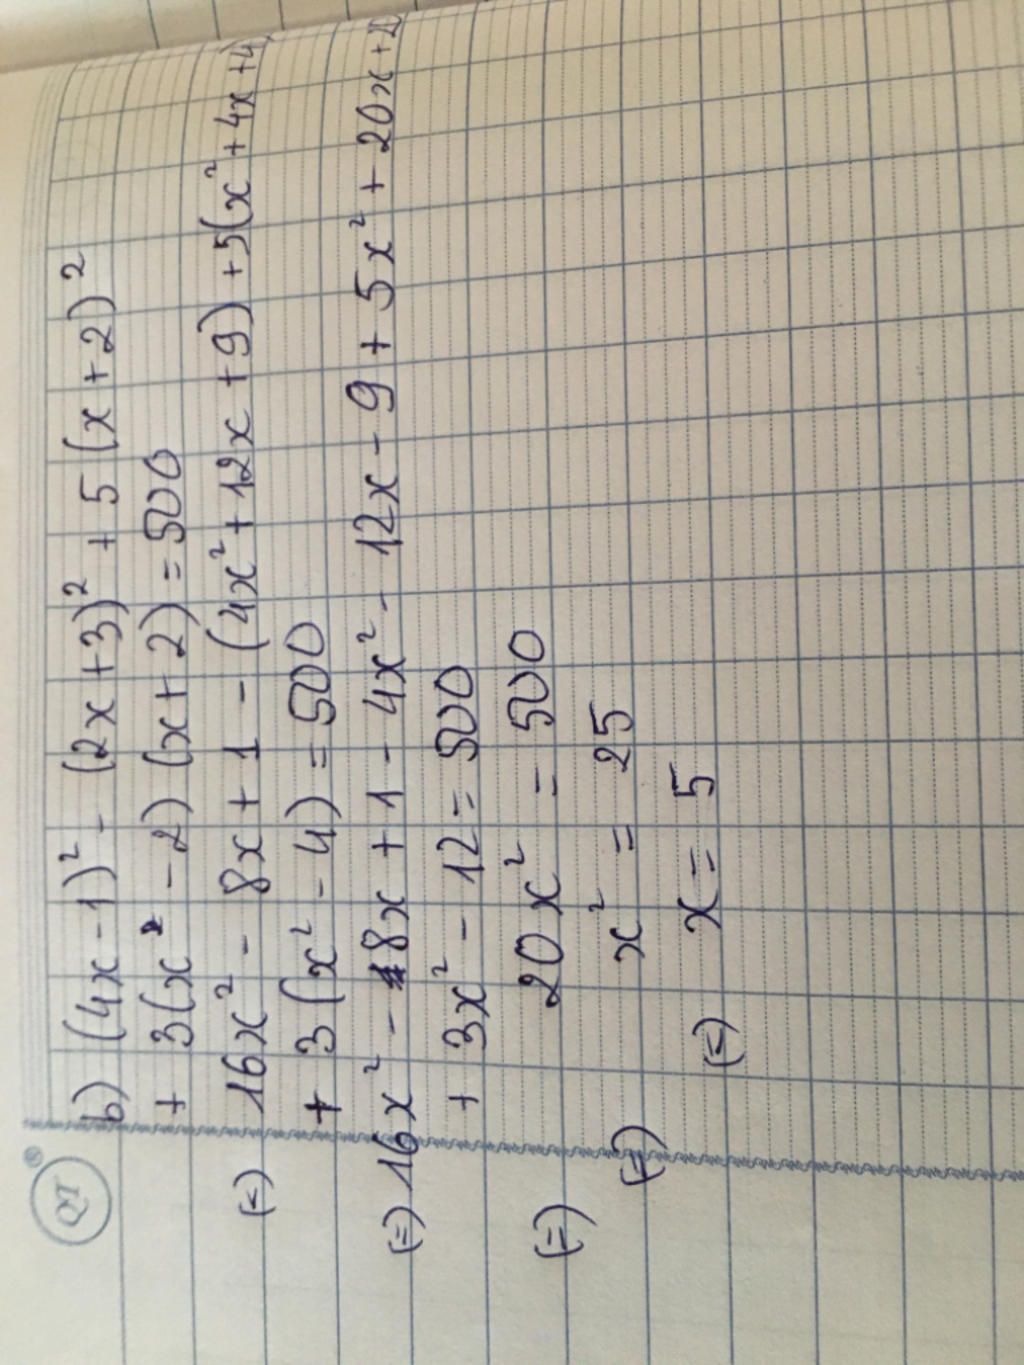 b) (4x - 1)² - (2x + 3)² + 5(x + 2)²
+ 3(x - 2)(x + 2) = 500
(=) 16x² - 8x + 1 - (4x² + 12x + 9) + 5(x² + 4x + 4)
+ 3(x² - 4) = 500
(=) 16x² - 8x + 1 - 4x² - 12x - 9 + 5x² + 20x +
+ 3x² - 12 = 500
(=) 20x² = 500
(=) x² = 25
(=) x = 5